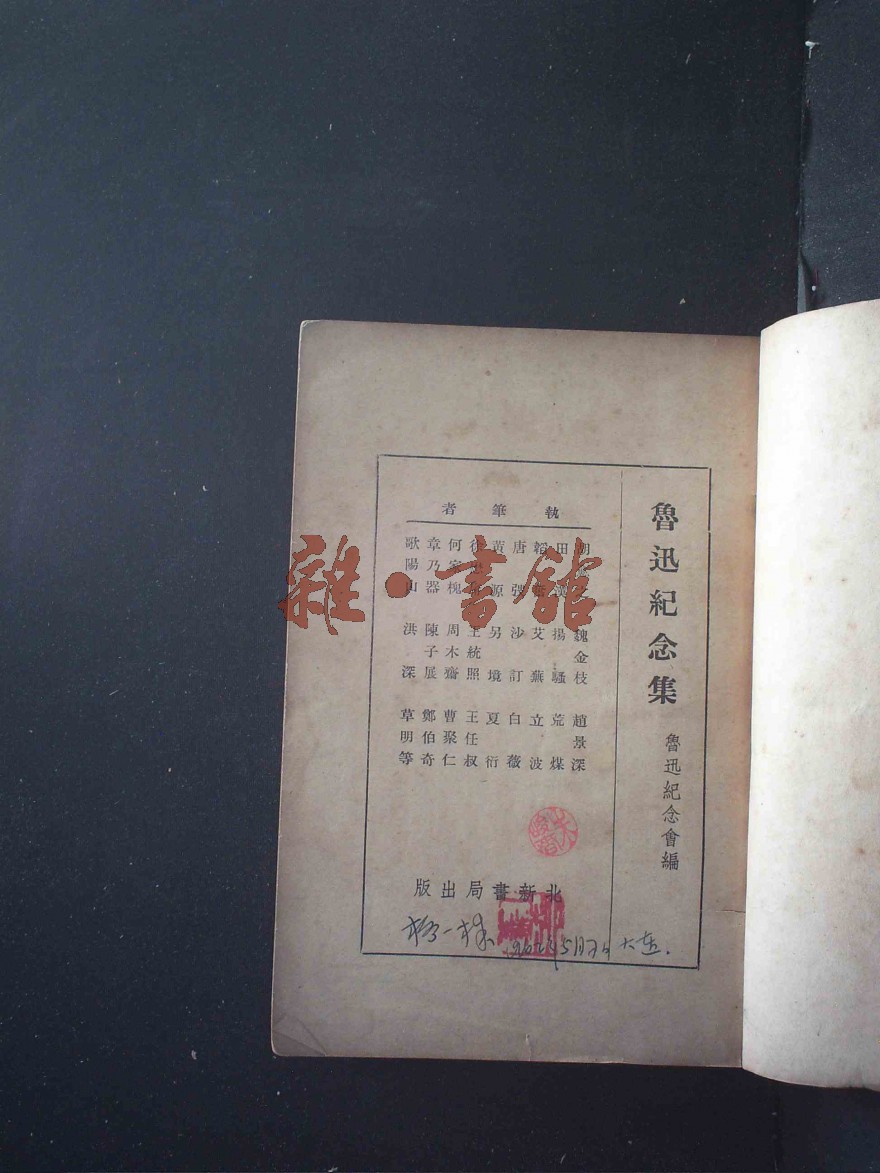 魯迅紀念集
魯迅紀念會編
執筆者
胡愈之 魏金枝 趙景深
田漢 揚騷 荒煤
韜奮 艾蕪 立波
唐弢 沙訂 白薇
黃源 另境 夏衍
徐懋庸 王統照 王任叔
何家槐 周木齋 曹聚仁
章乃器 陳子展 鄭伯奇
歐陽山 洪深 草明等
北新書局出版
雜·書館